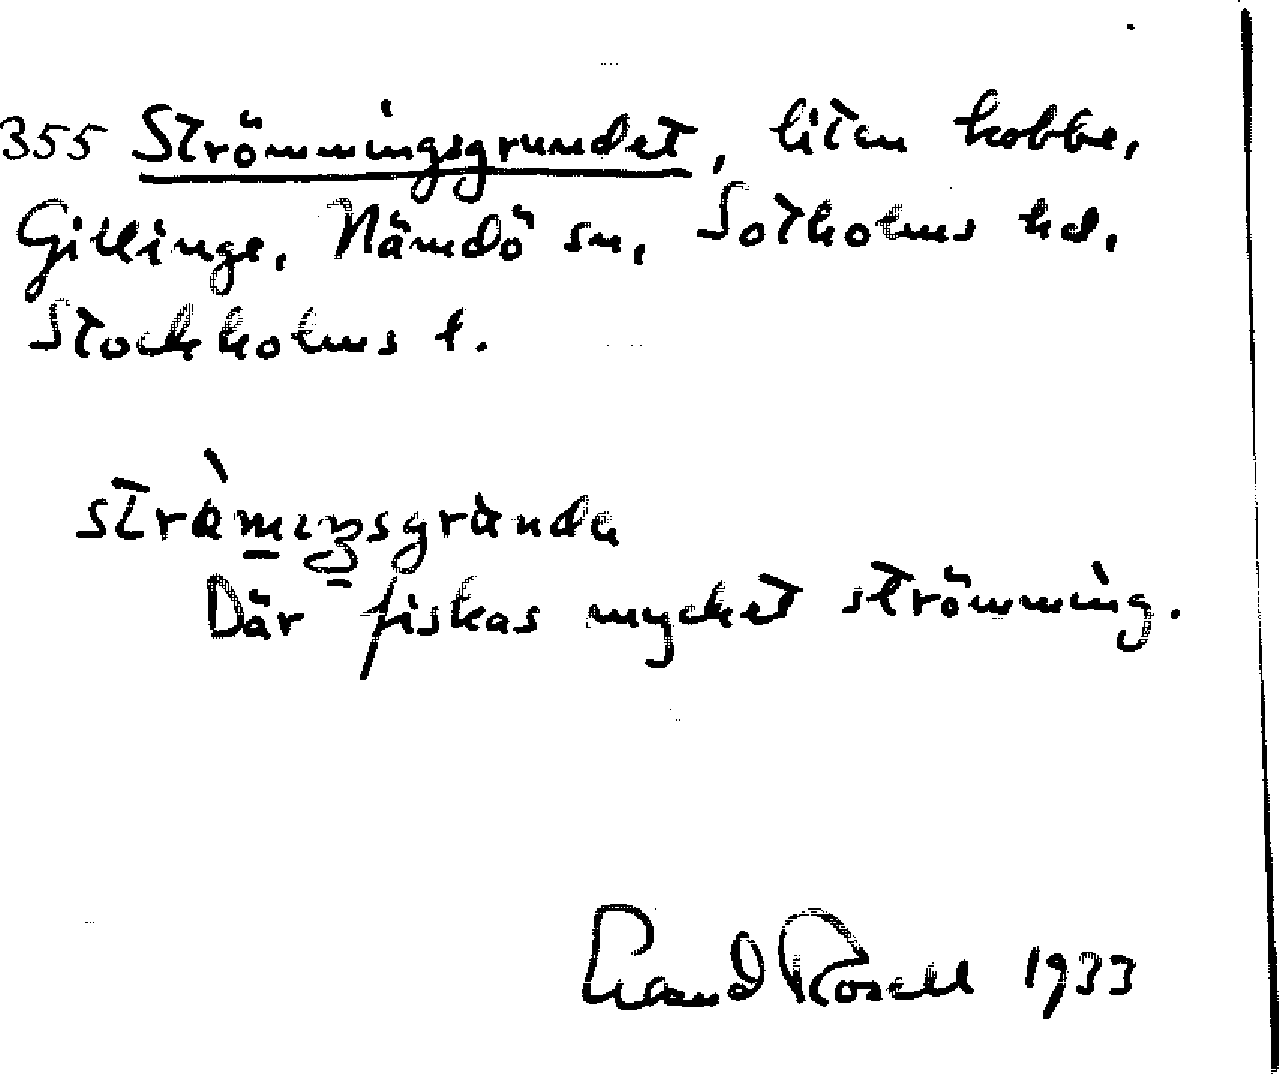 355 Strömmingsgrundet, liten kobbe,
Gillinge, Nämdö sn, Sotholms hd,
Stockholms l.
Där fiskas mycket strömming.
Rosell 1933